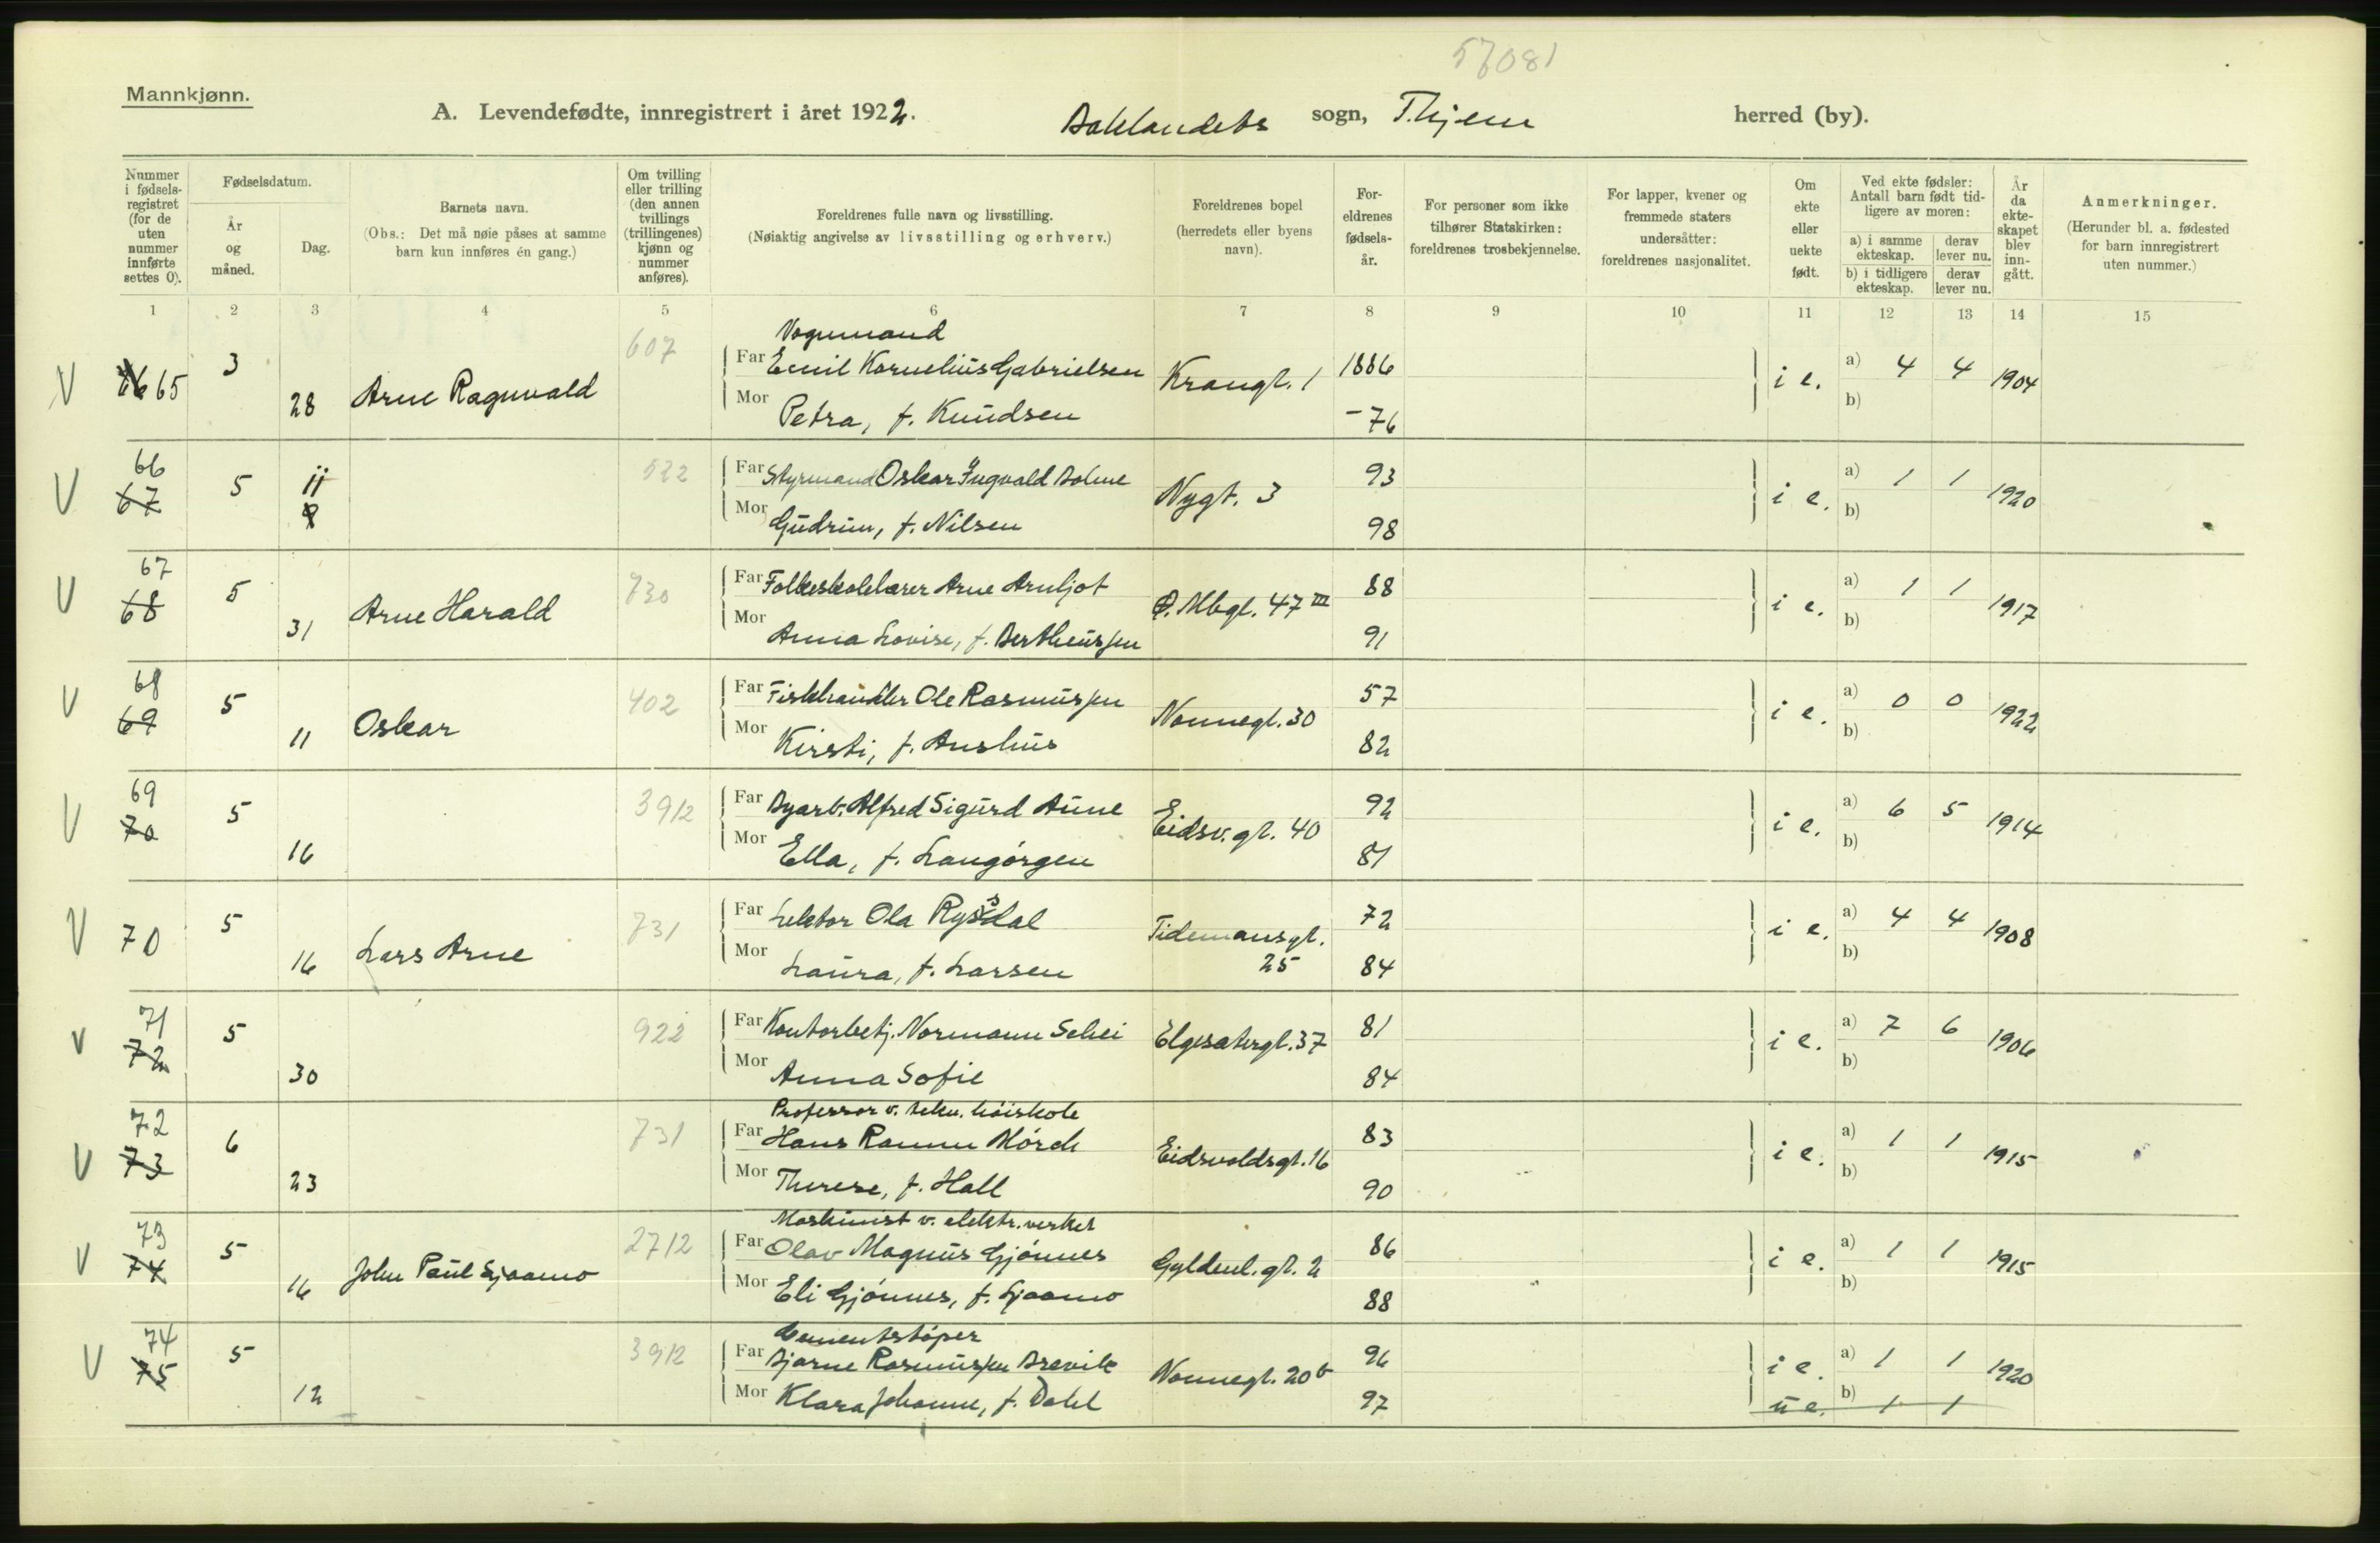 57081
Mannkjønn.
A. Levendefødte, innregistrert i året 1922. Baklandets sogn, T.hjem herred (by).
Nummer i fødsels-registret (for de uten nummer innførte settes 0).
Fødselsdatum.
År og måned.
Dag.
Barnets navn.
(Obs.: Det må nøie påses at samme barn kun innføres én gang.)
Om tvilling eller trilling (den annen tvillings (trillingenes) kjønn og nummer anføres).
Foreldrenes fulle navn og livsstilling.
(Nøiaktig angivelse av livsstilling og erhverv.)
Foreldrenes bopel (herredets eller byens navn).
For-eldrenes fødsels-år.
For personer som ikke tilhører Statskirken: foreldrenes trosbekjennelse.
For lapper, kvener og fremmede staters undersåtter: foreldrenes nasjonalitet.
Om ekte eller uekte født.
Ved ekte fødsler: Antall barn født tid-ligere av moren:
a) i samme ekteskap. derav lever nu.
b) i tidligere ekteskap. derav lever nu.
År da ekte-skapet blev inn-gått.
Anmerkninger.
(Herunder bl. a. fødested for barn innregistrert uten nummer.)
1 2 3 4 5 6 7 8 9 10 11 12 13 14 15
V 65 3 28 Arne Ragnvald 607
Vognmand
Far Emil Kornelius Gabrielsen Krangt. 1 1886 i e. a) 4 4 1904
Mor Petra, f. Knudsen -76 b)
V 66 67 5 11 522
Far Styrmand Oskar Ingvald Bohne Nygt. 3 93 i e. a) 1 1 1920
Mor Gudrun, f. Nilsen 98 b)
V 67 68 5 31 Arne Harald 730
Far Folkeskolelærer Arne Arnljot Ø. Mbgt. 47 III 88 i e. a) 1 1 1917
Mor Anna Lovise, f. Bertheussen 91 b)
V 68 69 5 11 Oskar 402
Far Fiskhandler Ole Rasmussen Nonnegt. 30 57 i e. a) 0 0 1922
Mor Kirsti, f. Aushus 82 b)
V 69 70 5 16 3912
Far Byarb. Alfred Sigurd Aune Eidsv. gt. 40 92 i e. a) 6 5 1914
Mor Ella, f. Langørgen 81 b)
V 70 5 16 Lars Arne 731
Far Lektor Ola Rysdal Tidemansgt. 25 72 i e. a) 4 4 1908
Mor Laura, f. Larsen 84 b)
V 71 72 5 30 922
Far Kontorbetj. Normann Schei Elgesætergt. 37 81 i e. a) 7 6 1906
Mor Anna Sofie 84 b)
V 72 73 6 23 731
Professor v. tekn. høiskole
Far Hans Ramm Mørch Eidsvoldsgt. 16 83 i e. a) 1 1 1915
Mor Therese, f. Hall 90 b)
V 73 74 5 16 John Paul Gjaamo 2712
Maskinist v. elektr. verket
Far Olav Magnus Gjønnes Gyldenl. gt. 2 86 i e. a) 1 1 1915
Mor Eli Gjønnes, f. Gjaamo 88 b)
V 74 75 5 12 3912
Cementstøper
Far Bjarne Rasmussen Brevik Nonnegt. 20 b 96 i e. a) 1 1 1920
Mor Klara Johanne, f. Dahl 97 u e. b) 1 1